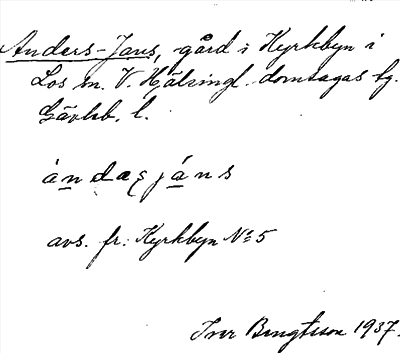 Anders-Jans, gård i Kyrkbyn i
Los sn. V. Hälsingl. domsagas tg.
Gävleb. l.
àndaʂjáns
avs. fr. Kyrkbyn No 5
Iver Bengtsson 1937.